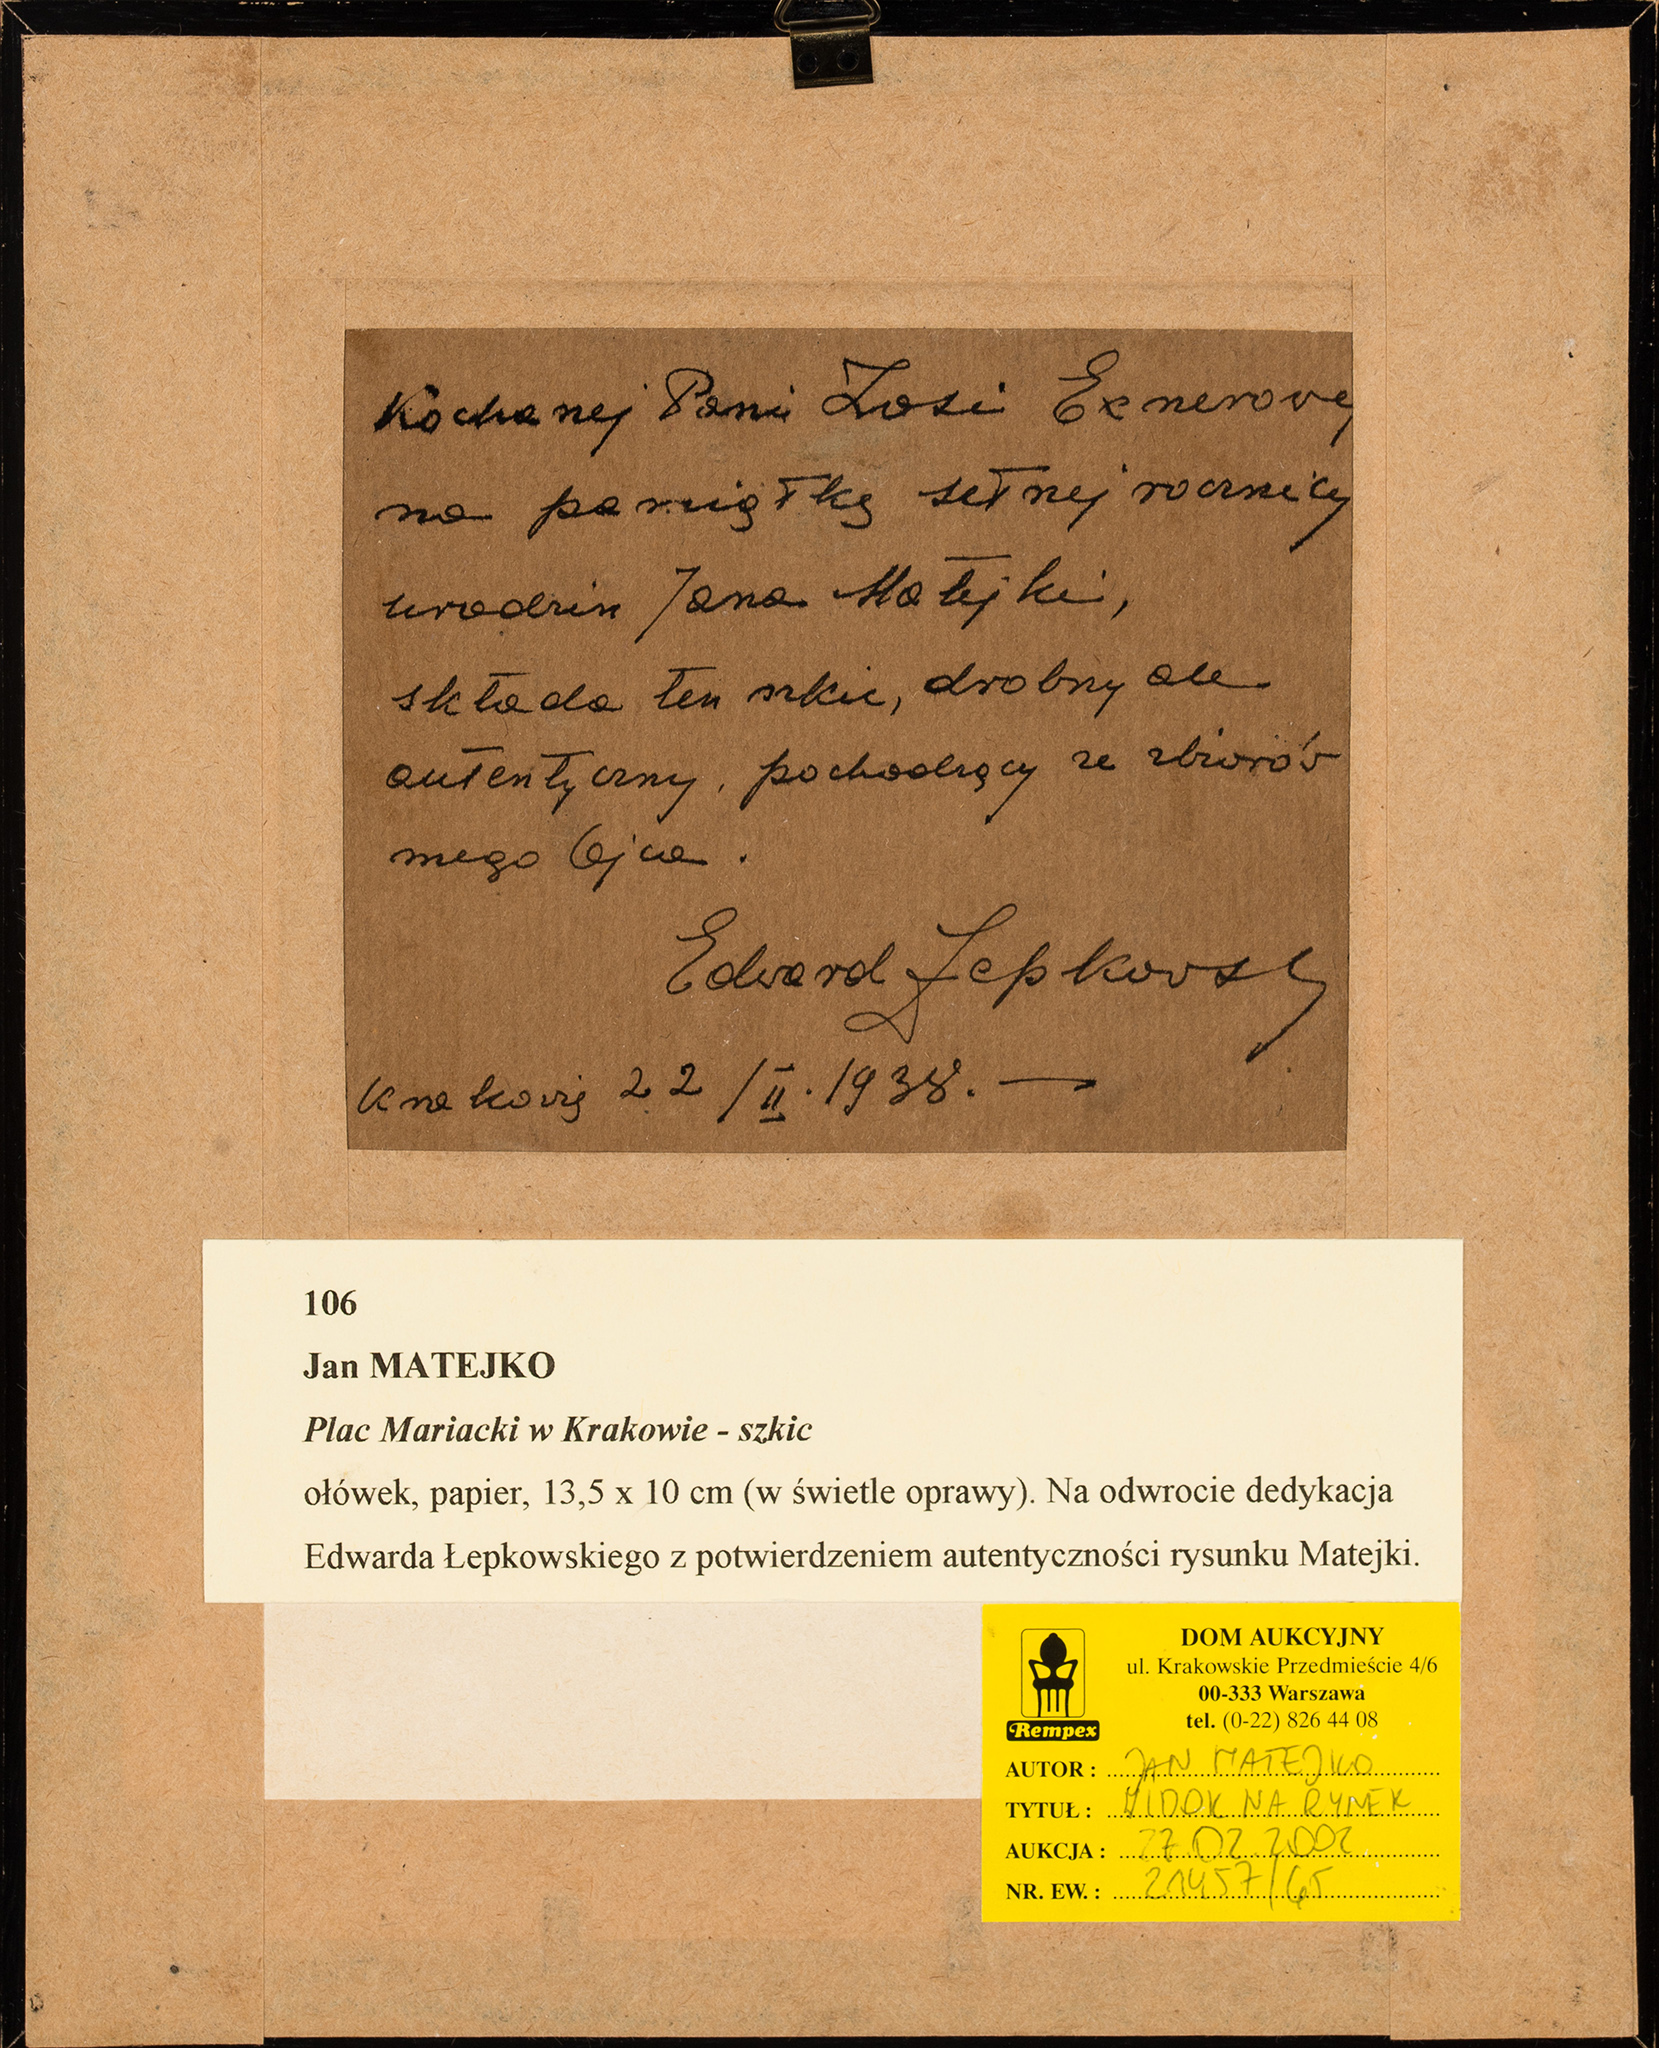 Kochanej Pani Zosi Exnerovej
na pamiątkę setnej rocznicy
urodzin Jana Matejki,
składa ten szkic, drobny ale
autentyczny, pochodzący ze zbiorów
mego Ojca.
Edward Łepkowski
Kraków 22/II.1938.
106
Jan MATEJKO
Plac Mariacki w Krakowie - szkic
ołówek, papier, 13,5 x 10 cm (w świetle oprawy). Na odwrocie dedykacja
Edwarda Łepkowskiego z potwierdzeniem autentyczności rysunku Matejki.
DOM AUKCYJNY
ul. Krakowskie Przedmieście 4/6
00-333 Warszawa
tel. (0-22) 826 44 08
Rempex
AUTOR: JAN MATEJKO
TYTUŁ: WIDOK NA RYNEK
AUKCJA: 27.02.2002
NR. EW.: 21457/65